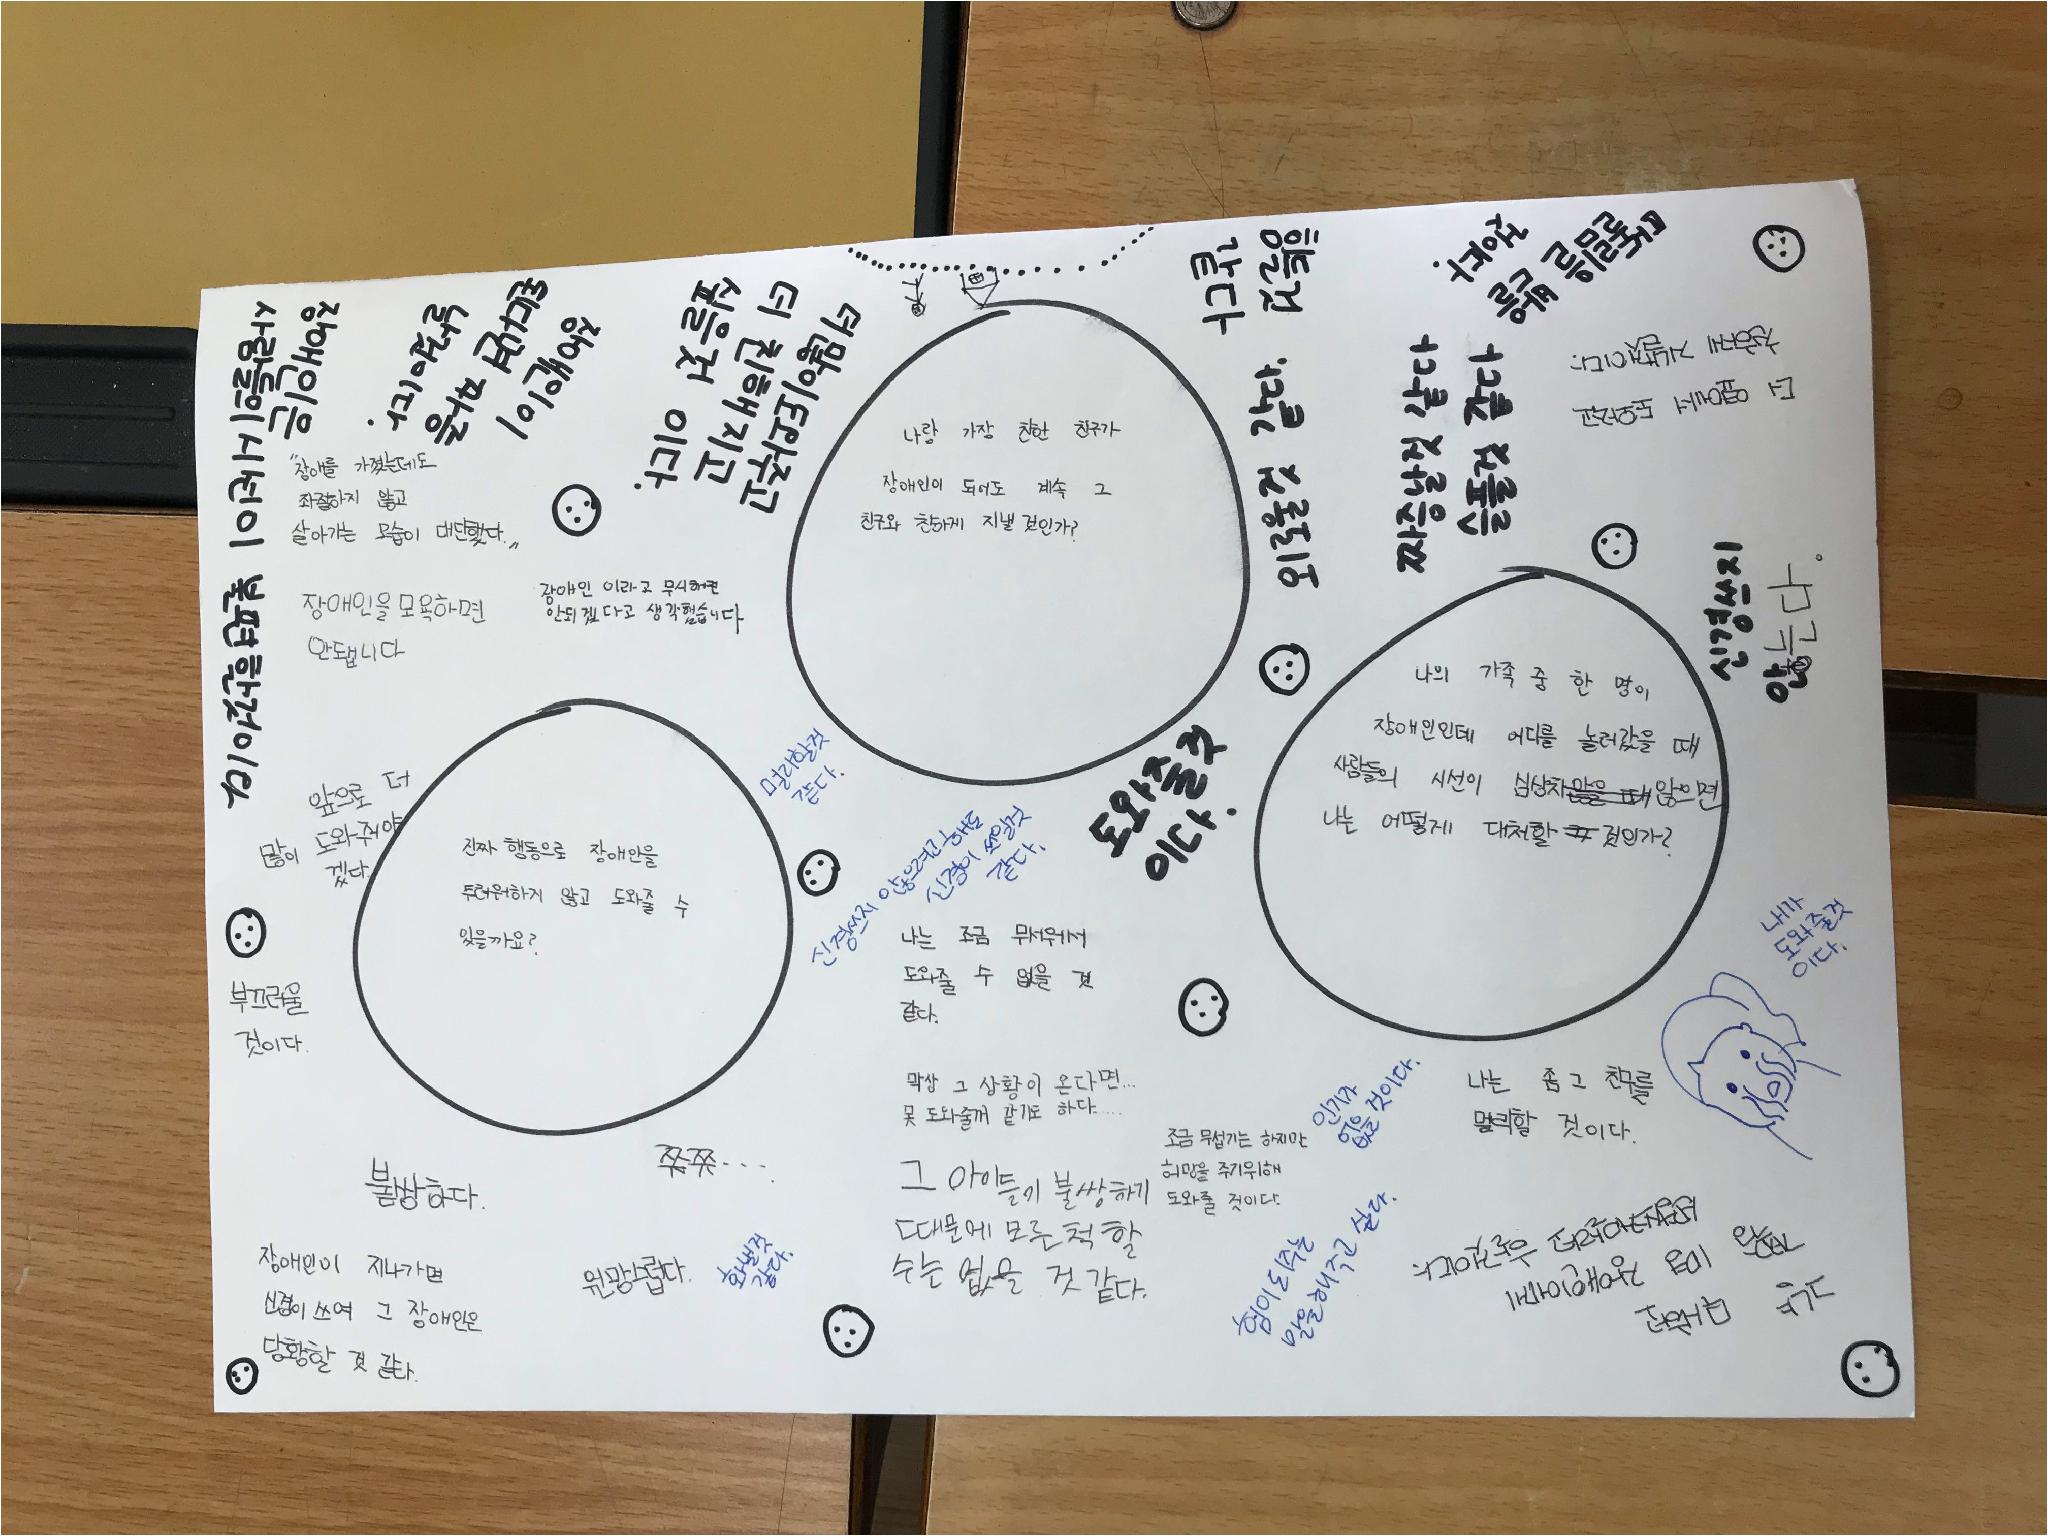 장애인은
사람들의 시선이 불편한것이다
장애인이
된다면 죽을
힘들 것 같다
더많이 도와주고
더 친해지고
싶을 것 이다.
외로울것 같다.
짜증날것 같다
슬플것 같다
더 옆에서 도와주고
"장애를 가졌는데도
좌절하지 않고
살아가는 모습이 대단했다."
장애인을 모욕하면
안됩니다
장애인 이라고 무시하면
안되겠다고 생각했습니다
나랑 가장 친한 친구가
장애인이 되어도 계속 그
친구와 친하게 지낼 것인가?
신경쓰지
않는다.
나의 가족 중 한 명이
장애인인데 어디를 놀러갔을 때
사람들의 시선이 심상치않을 때 않으면
나는 어떻게 대처할 것인가?
도와줄것
이다.
멀리할것
같다.
신경쓰지 않으려고해도
신경이 쓰일것
같다.
앞으로 더
많이 도와줘야
겠다.
진짜 행동으로 장애인을
두려워하지 않고 도와줄 수
있을까요?
나는 조금 무서워서
도와줄 수 없을 것
같다.
내가
도와줄것
이다.
부끄러울
것이다.
막상 그 상황이 온다면...
못 도와줄꺼 같기도 하다.....
조금 무섭기는 하지만
희망을 주기위해
도와줄 것이다.
인기가
없을 것이다.
나는 좀 그 친구를
멀리할 것이다.
불쌍하다.
쯧쯧...
그 아이들이 불쌍하기
때문에 모른척 할
수는 없을 것 같다.
힘이되주는
말을해주고 싶다.
장애인이 지나가면
신경이 쓰여 그 장애인은
당황할 것 같다.
원망스럽다.
화낼것
같다.